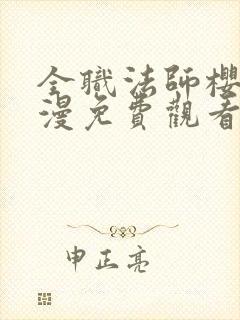 全職法師櫻
漫免費觀看
申正亮